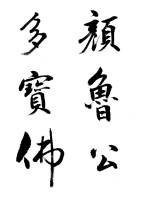 顏魯公
多寶佛